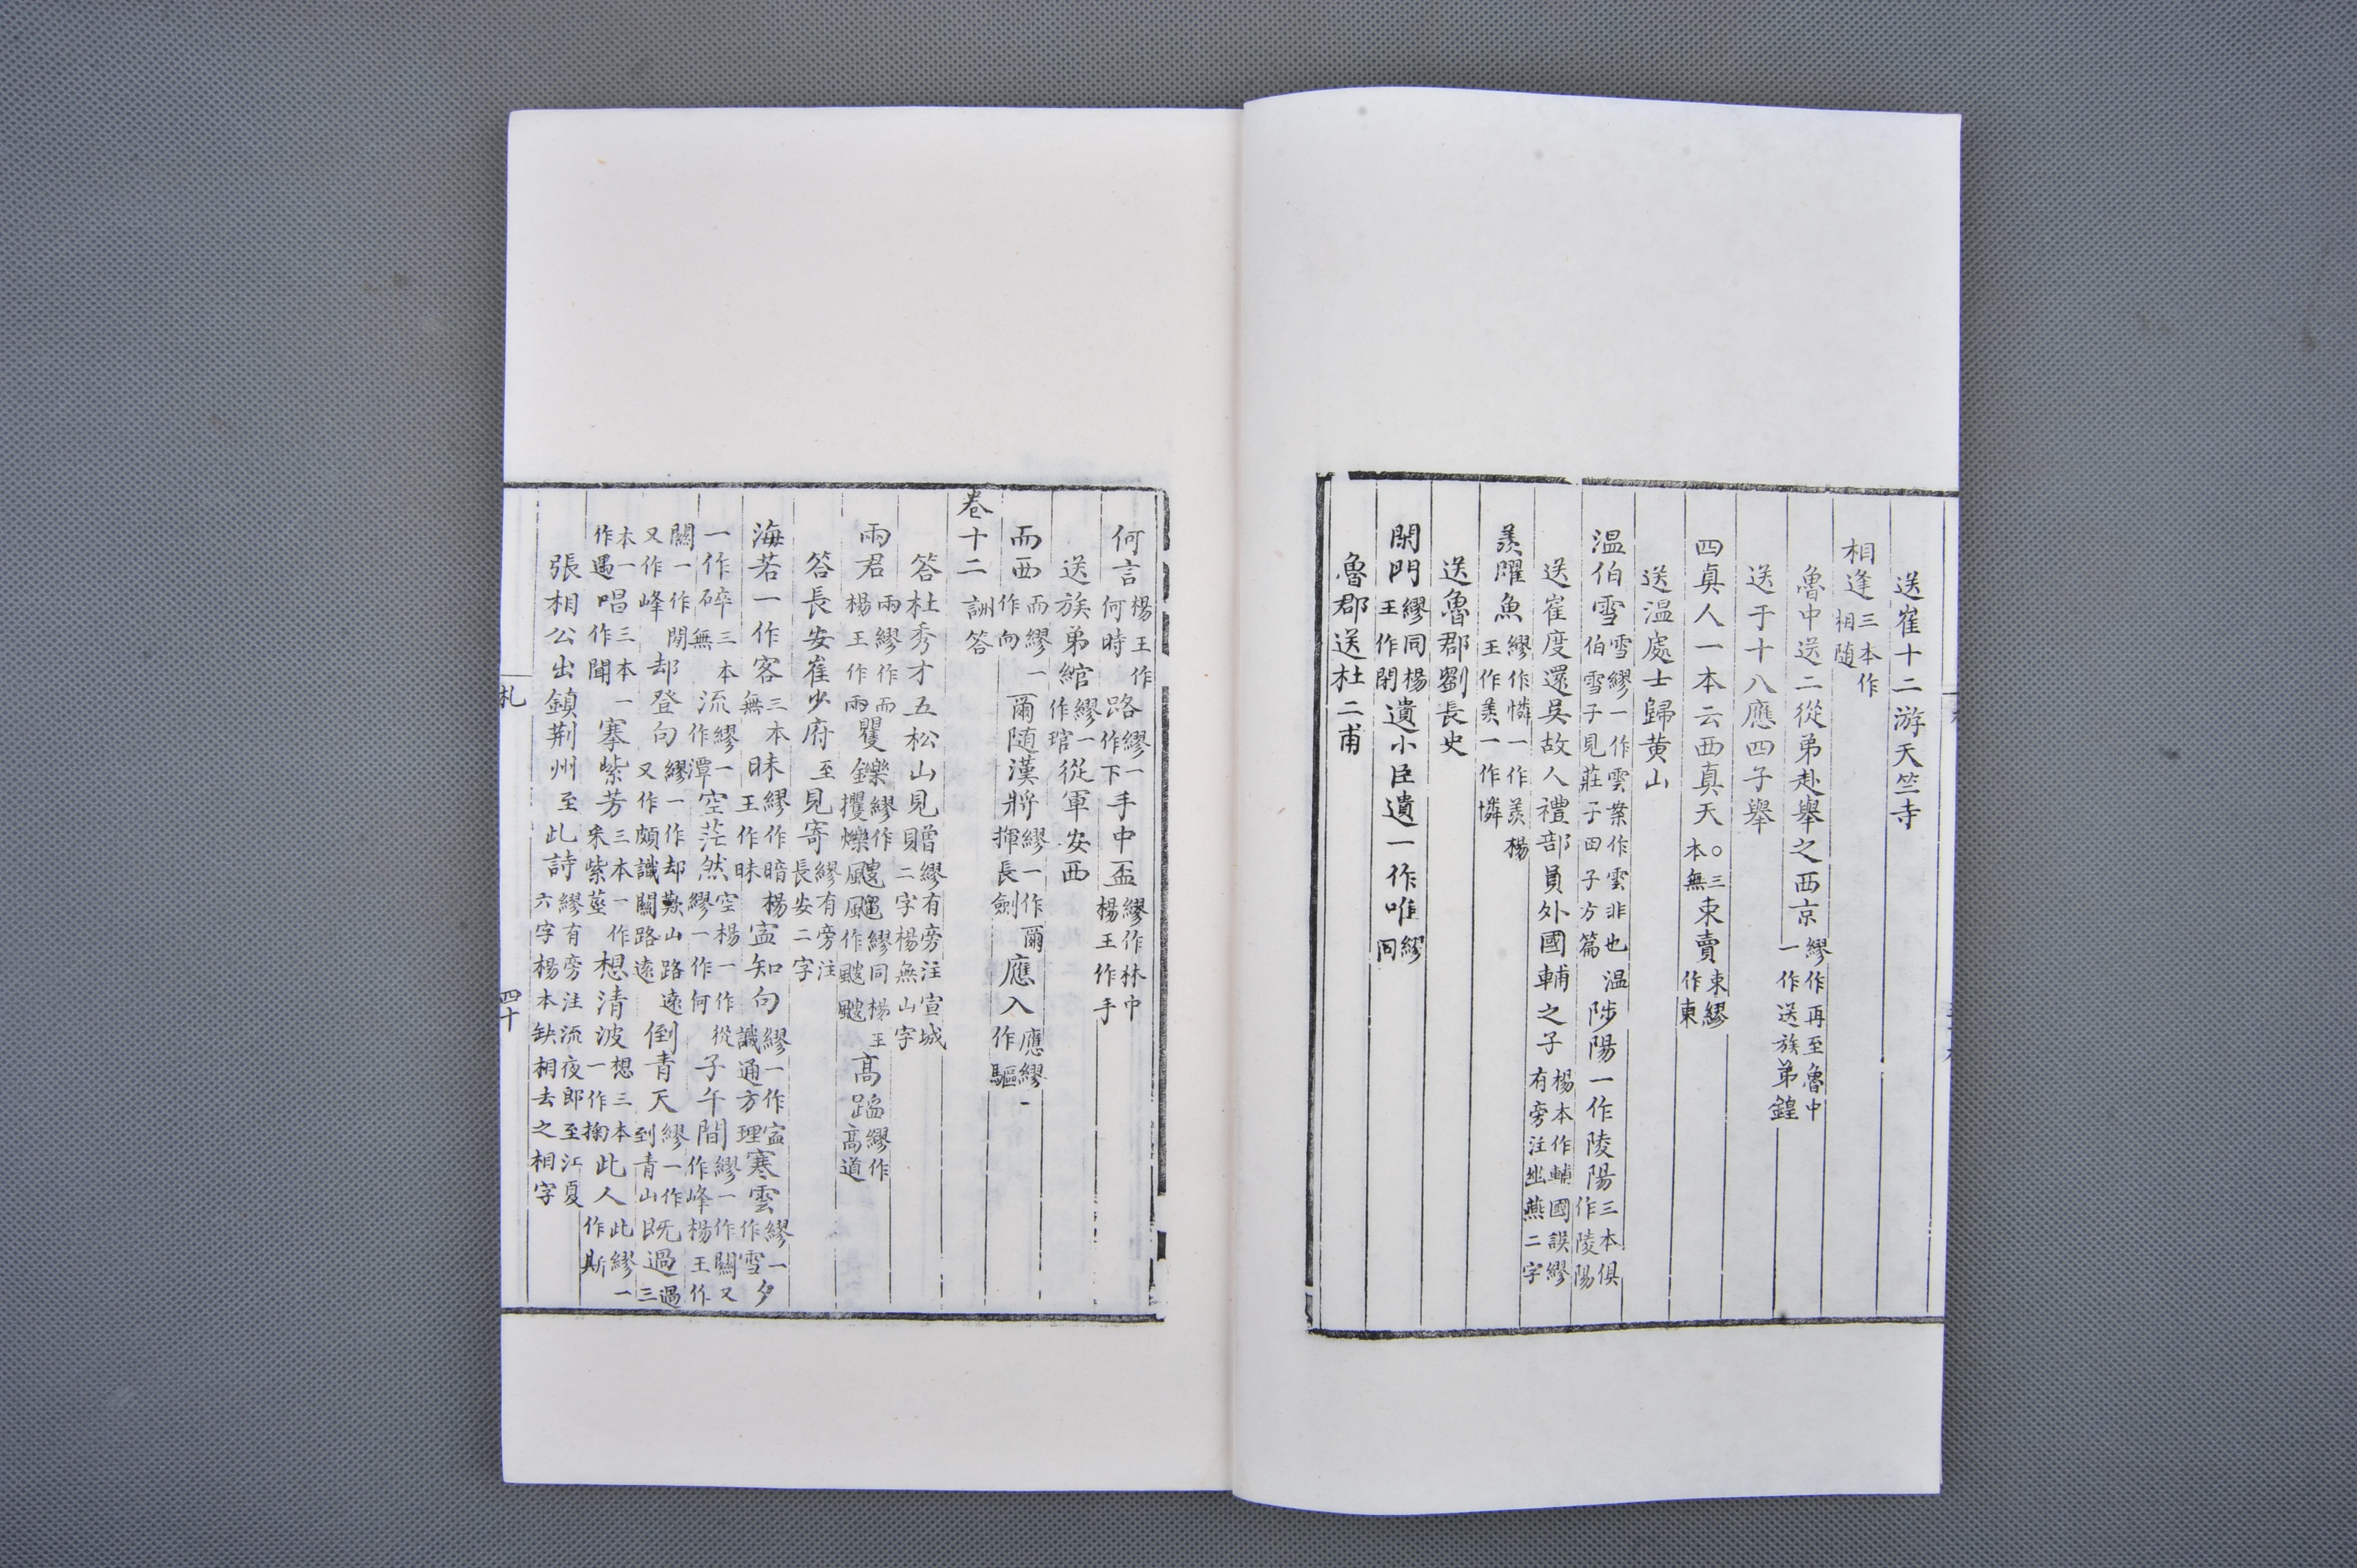 送崔十二游天竺寺
相逢三本作相随
魯中送二從弟赴舉之西京繆作再至魯中一作送族弟鍠
送于十八應四子舉
四真人一本云西真天〇三本無束賣束繆作東
送温處士歸黄山
温伯雪雪繆一作雲案作雲非也伯雪子見莊子田子方篇温陟陽一作陵陽三本俱作陵陽
送崔度還吳故人禮部員外國輔之子楊本作輔國誤繆有旁注幽燕二字
羨躍魚繆作憐一作羨楊王作羨一作憐
送魯郡劉長史
閉門繆同楊王作閉遺小臣遺一作唯繆同
魯郡送杜二甫
何言楊王作何時路繆一作下手中盃繆作林中楊王作手
送族弟綰繆一作琯從軍安西
而西而繆一作向爾随漢將繆一作爾揮長劍應入應繆一作驅
卷十二詶答
答杜秀才五松山見贈繆有旁注宣城二字楊無山字
雨君雨繆作而楊王作雨矍鑠繆作攫爍飈繆同楊王作颼颼高蹈繆作高道
答長安崔少府至見寄繆有旁注長安二字
海若一作客三本無昧繆作暗楊王作昧寍知向繆一作寍識通方理寒雲繆一作雪夕
一作碎三本無流繆一作潭空茫然空楊一作從繆一作何子午間繆一作關又作峰楊王作
關一作閉又作峰却登向繆一作却歎山路遠又作頗識關路遠倒青天繆一作既到青山過過三
本一作遇唱三本一作聞搴紫芳三本一作采紫莖想清波想三本一作掬此人此繆一作斯
張相公出鎮荆州至此詩繆有旁注流夜郎至江夏六字楊本缺相去之相字
札
四十